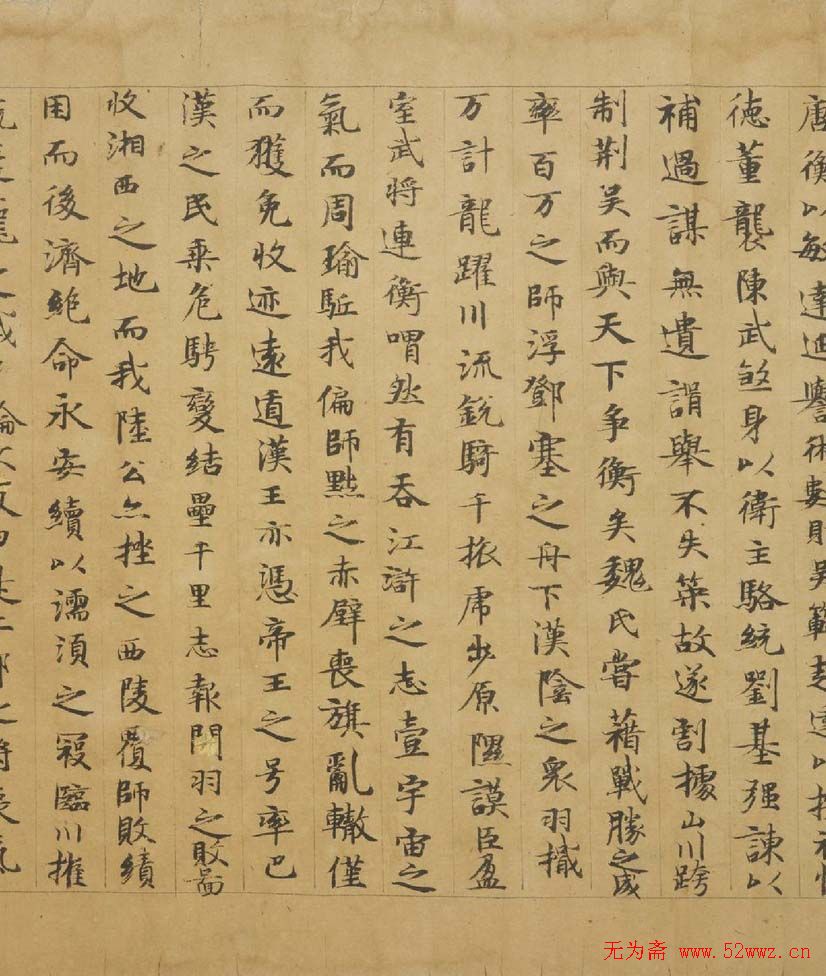 衡以敏達延譽術數則吳範趙達以
徳董襲陳武煞身以衛主駱統劉基强諫以
補過謀無遺諝舉不失筞故遂割據山川跨
制荆吴而與天下爭衡矣魏氏嘗藉戰勝之威
率百万之師浮鄧塞之舟下漢陰之衆羽檝
万計龍躍川流銳騎千旅虎步原隰謨臣盈
室武将連衡喟然有吞江滸之志壹宇宙之
氣而周瑜駈我偏師黜之赤壁喪旗亂轍僅
而獲免收迹遠遁漢王亦憑帝王之号率巴
漢之民乗危騁變結壘千里志報關羽之敗啚
收湘西之地而我陸公亦挫之西陵覆師敗績
困而後濟絶命永安續以濡湏之寇臨川摧
无为斋 www.52wwz.cn